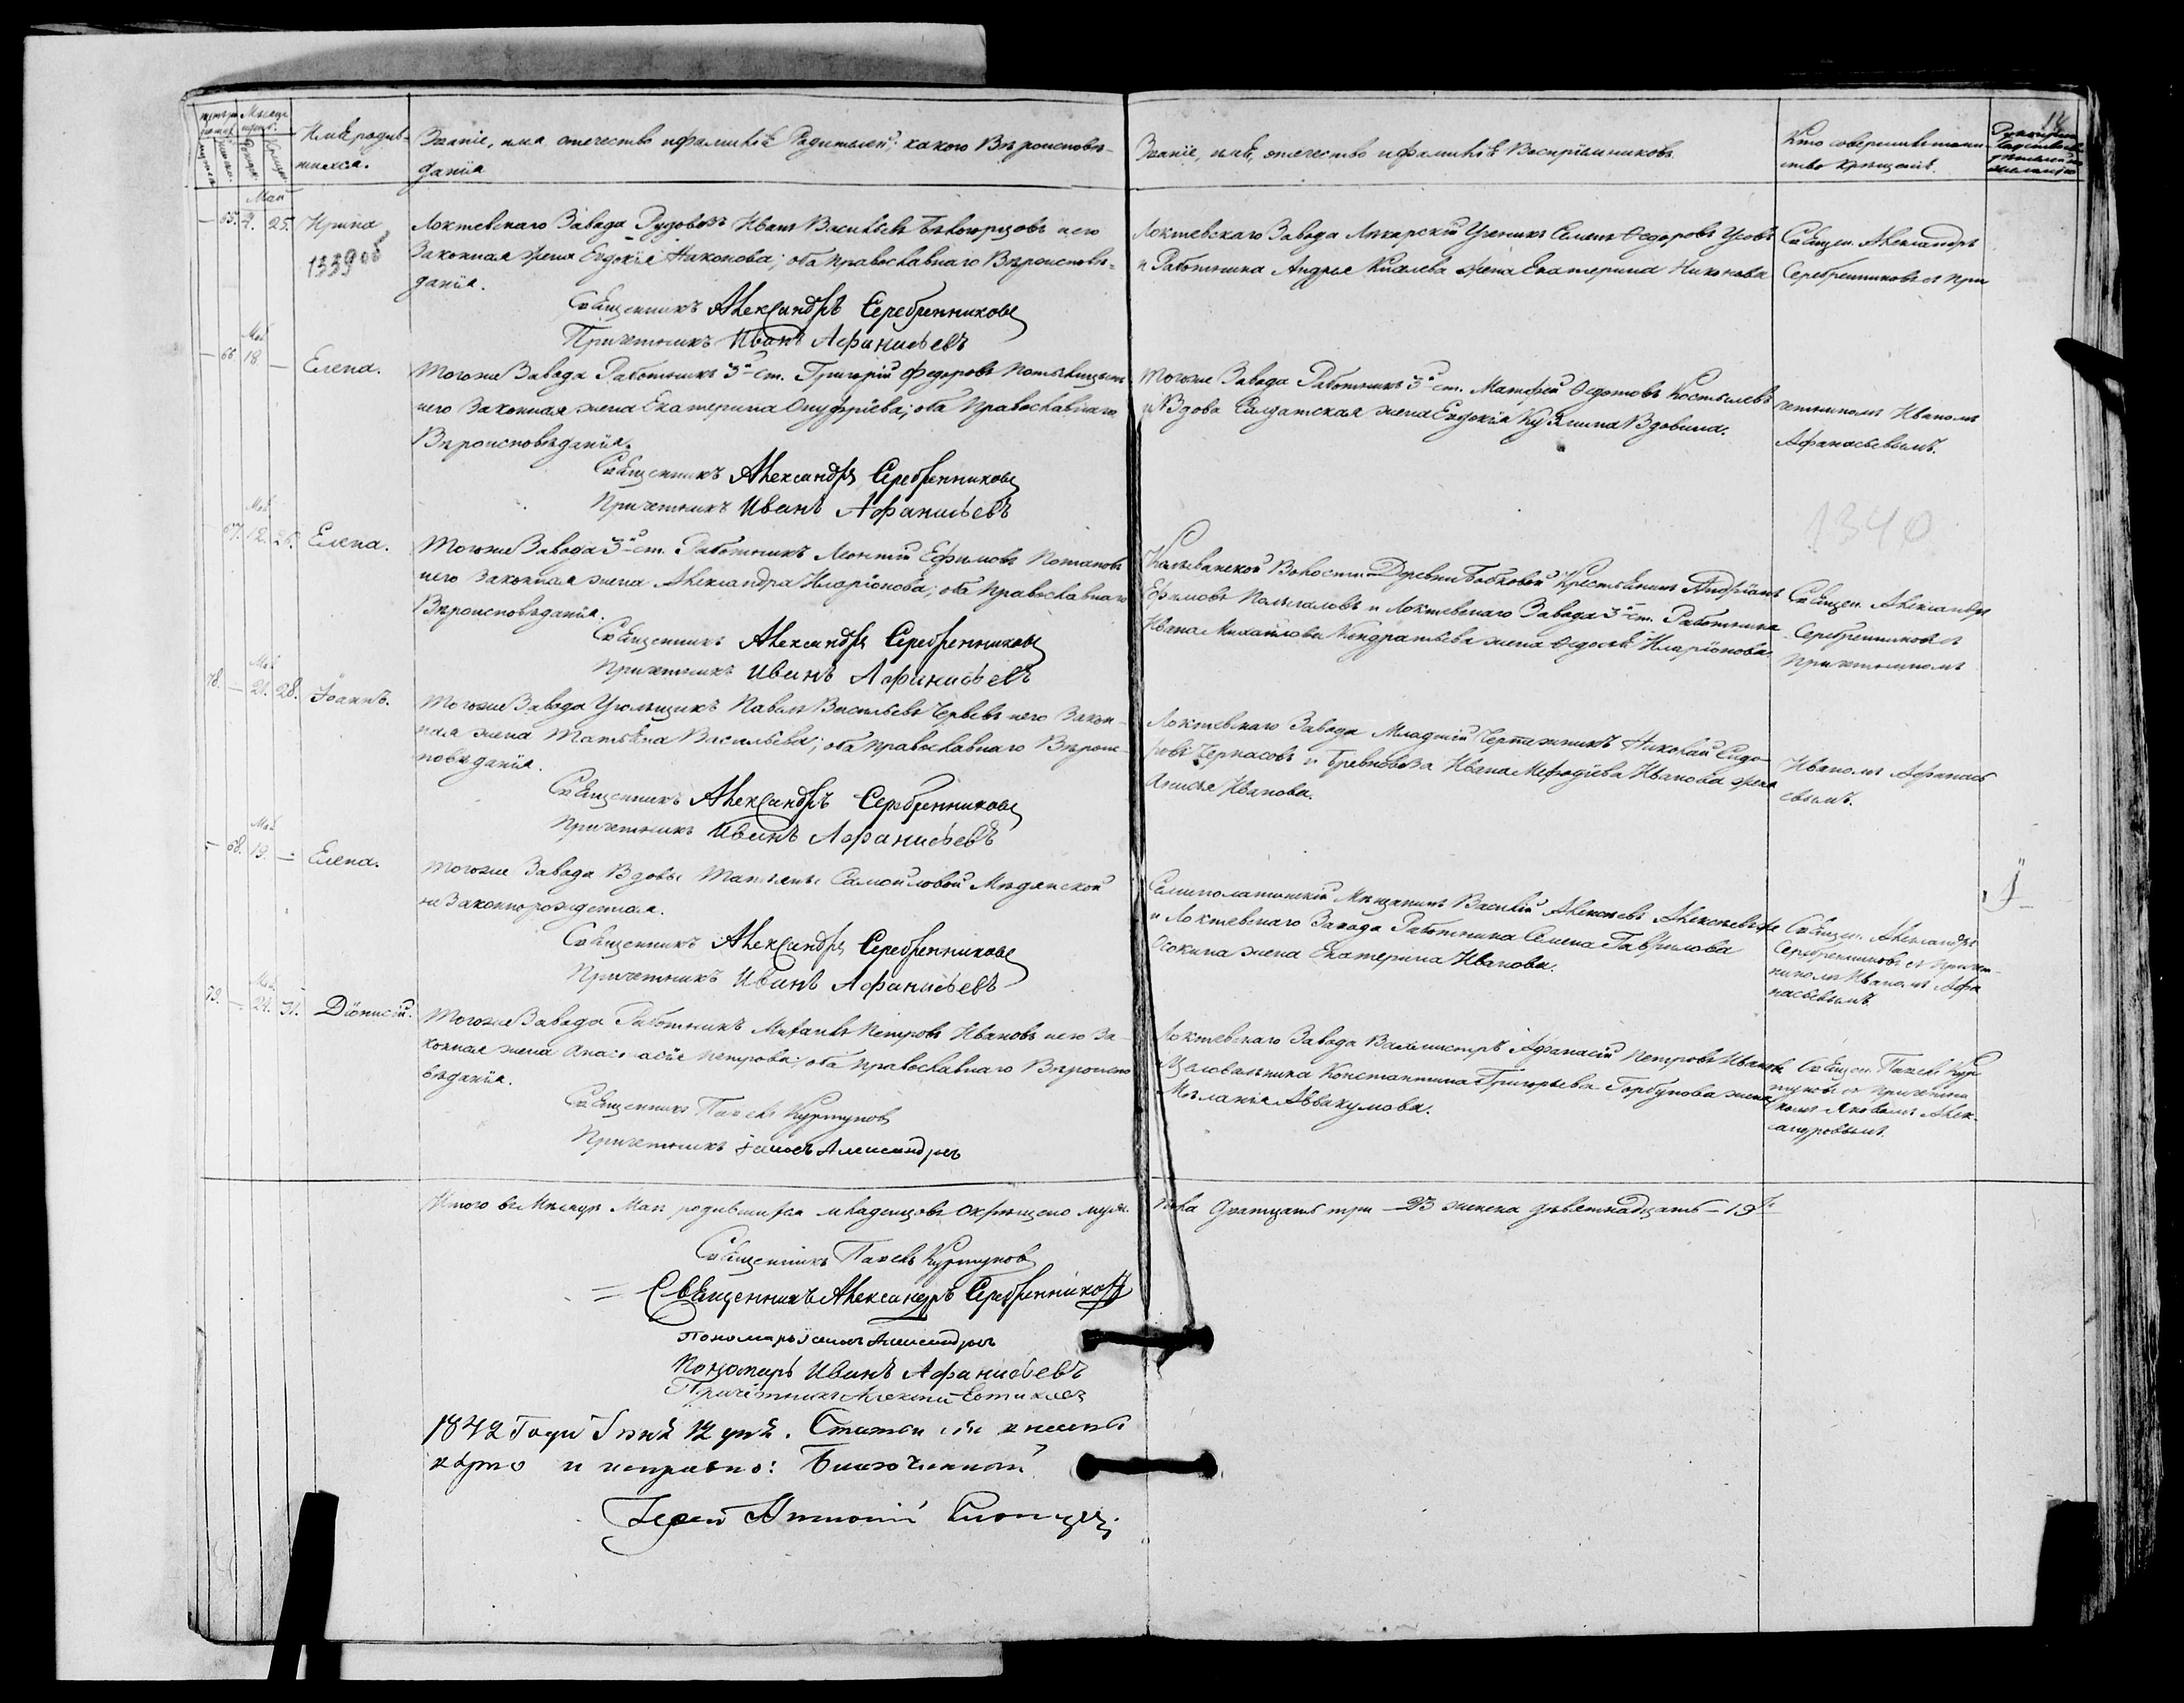 Имѣ родив-
шихся.
Званіе, имя, отечество и фамилія Родителей, и какого Вѣроисповѣ-
данія
Званіе, имѣ, отечество и фамилія Воспріемниковъ.
Кто совершилъ таин-
ство крещенія.
Май
65. 4. 25.
Ирина
1339 об
Локтевскаго Завода Рудовозъ Иванъ Васильевъ и его
Законная жена Евдокія Никонова; оба православнаго Вѣроисповѣ-
данія.
Священникъ Александръ Серебренниковъ
Причетникъ Иванъ Афанасьевъ
Локтевскаго Завода Лекарскій Ученикъ Семенъ Ѳедоровъ Усовъ
и Работника Андрея Киселева жена Екатерина Никонова
Священ. Александръ
Серебренниковъ съ при
66. 18. —
Елена.
Тогоже Завода Работникъ 3й ст. Григорій Федоровъ
и его Законная жена Екатерина Онуфріева; оба Православнаго
Вѣроисповѣданія.
Священникъ Александръ Серебренниковъ
Причетникъ Иванъ Афанасьевъ
Тогоже Завода Работникъ 3й ст. Матфей Ѳедотовъ Костылевъ
и Вдова Салдатская жена Евдокія Кузмина Вдовина.
четникомъ Иваномъ
Афанасьевымъ.
1340
67. 12. 26.
Елена.
Тогоже Завода 3й ст. Работникъ Леонтій Ефимовъ Потаповъ
и его Законная жена Александра Иларіонова; оба Православнаго
Вѣроисповѣданія.
Священникъ Александръ Серебренниковъ
Причетникъ Иванъ Афанасьевъ
Колыванской Волости Деревни Бобковой Крестьянинъ Андріанъ
Ефимовъ и Локтевскаго Завода 3й ст. Работника
Ивана Михайлова Кондратьева жена Ѳедосья Иларіонова
Священ. Александръ
Серебренниковъ съ
Причетникомъ
78. — 21. 28.
Іоаннъ.
Тогоже Завода Угольщикъ Павелъ Васильевъ и его Закон-
ная жена Татьяна Васильева; оба православнаго Вѣроис-
повѣданія.
Священникъ Александръ Серебренниковъ
Причетникъ Иванъ Афанасьевъ
Локтевскаго Завода Младшій Чертежникъ Николай Сидо-
ровъ Черкасовъ и Бревновоза Ивана Мефодіева Иванова жена
Анисья Иванова.
Иваномъ Афанась
евымъ.
— 68. 19. —
Елена.
Тогоже Завода Вдовы Татьяны Самойловой
незаконнорожденная.
Священникъ Александръ Серебренниковъ
Причетникъ Иванъ Афанасьевъ
Семиполатинскій Мѣщанинъ Василій Алексѣевъ
и Локтевскаго Завода Работника Семена Гаврилова
Осокина жена Екатерина Иванова.
Священ. Александръ
Серебренниковъ съ причет-
никомъ Иваномъ Афа
насьевымъ.
79. — 24. 31.
Діонисій.
Тогоже Завода Работникъ Петровъ Ивановъ и его За-
конная жена Анастасія Петрова; оба православнаго Вѣроиспо
вѣданія.
Священникъ Павелъ Куртуковъ
Причетникъ Іаковъ Александровъ
Локтевскаго Завода Вахмистръ Афанасій Петровъ Ивановъ
и Целовальника Константина Григорьева Горбунова жена
Меланія Аввакумова.
Священ. Павелъ Кур
туковъ съ причетни
комъ Яковомъ Алек-
андровымъ.
Итого въ Месяцѣ Маѣ родившихся младенцовъ окрещено муже-
ска дватцать три — 23 женска девятнадцать — 19
Священникъ Павелъ Куртуковъ
Священникъ Александръ Серебренниковъ
Пономарь Іаковъ Александровъ
Пономарь Иванъ Афанасьевъ
Причетникъ Алексѣй
1842 Года Іюня 12 дня. Статьи сіи
вѣрно и исправно: Благочинный
Іерей